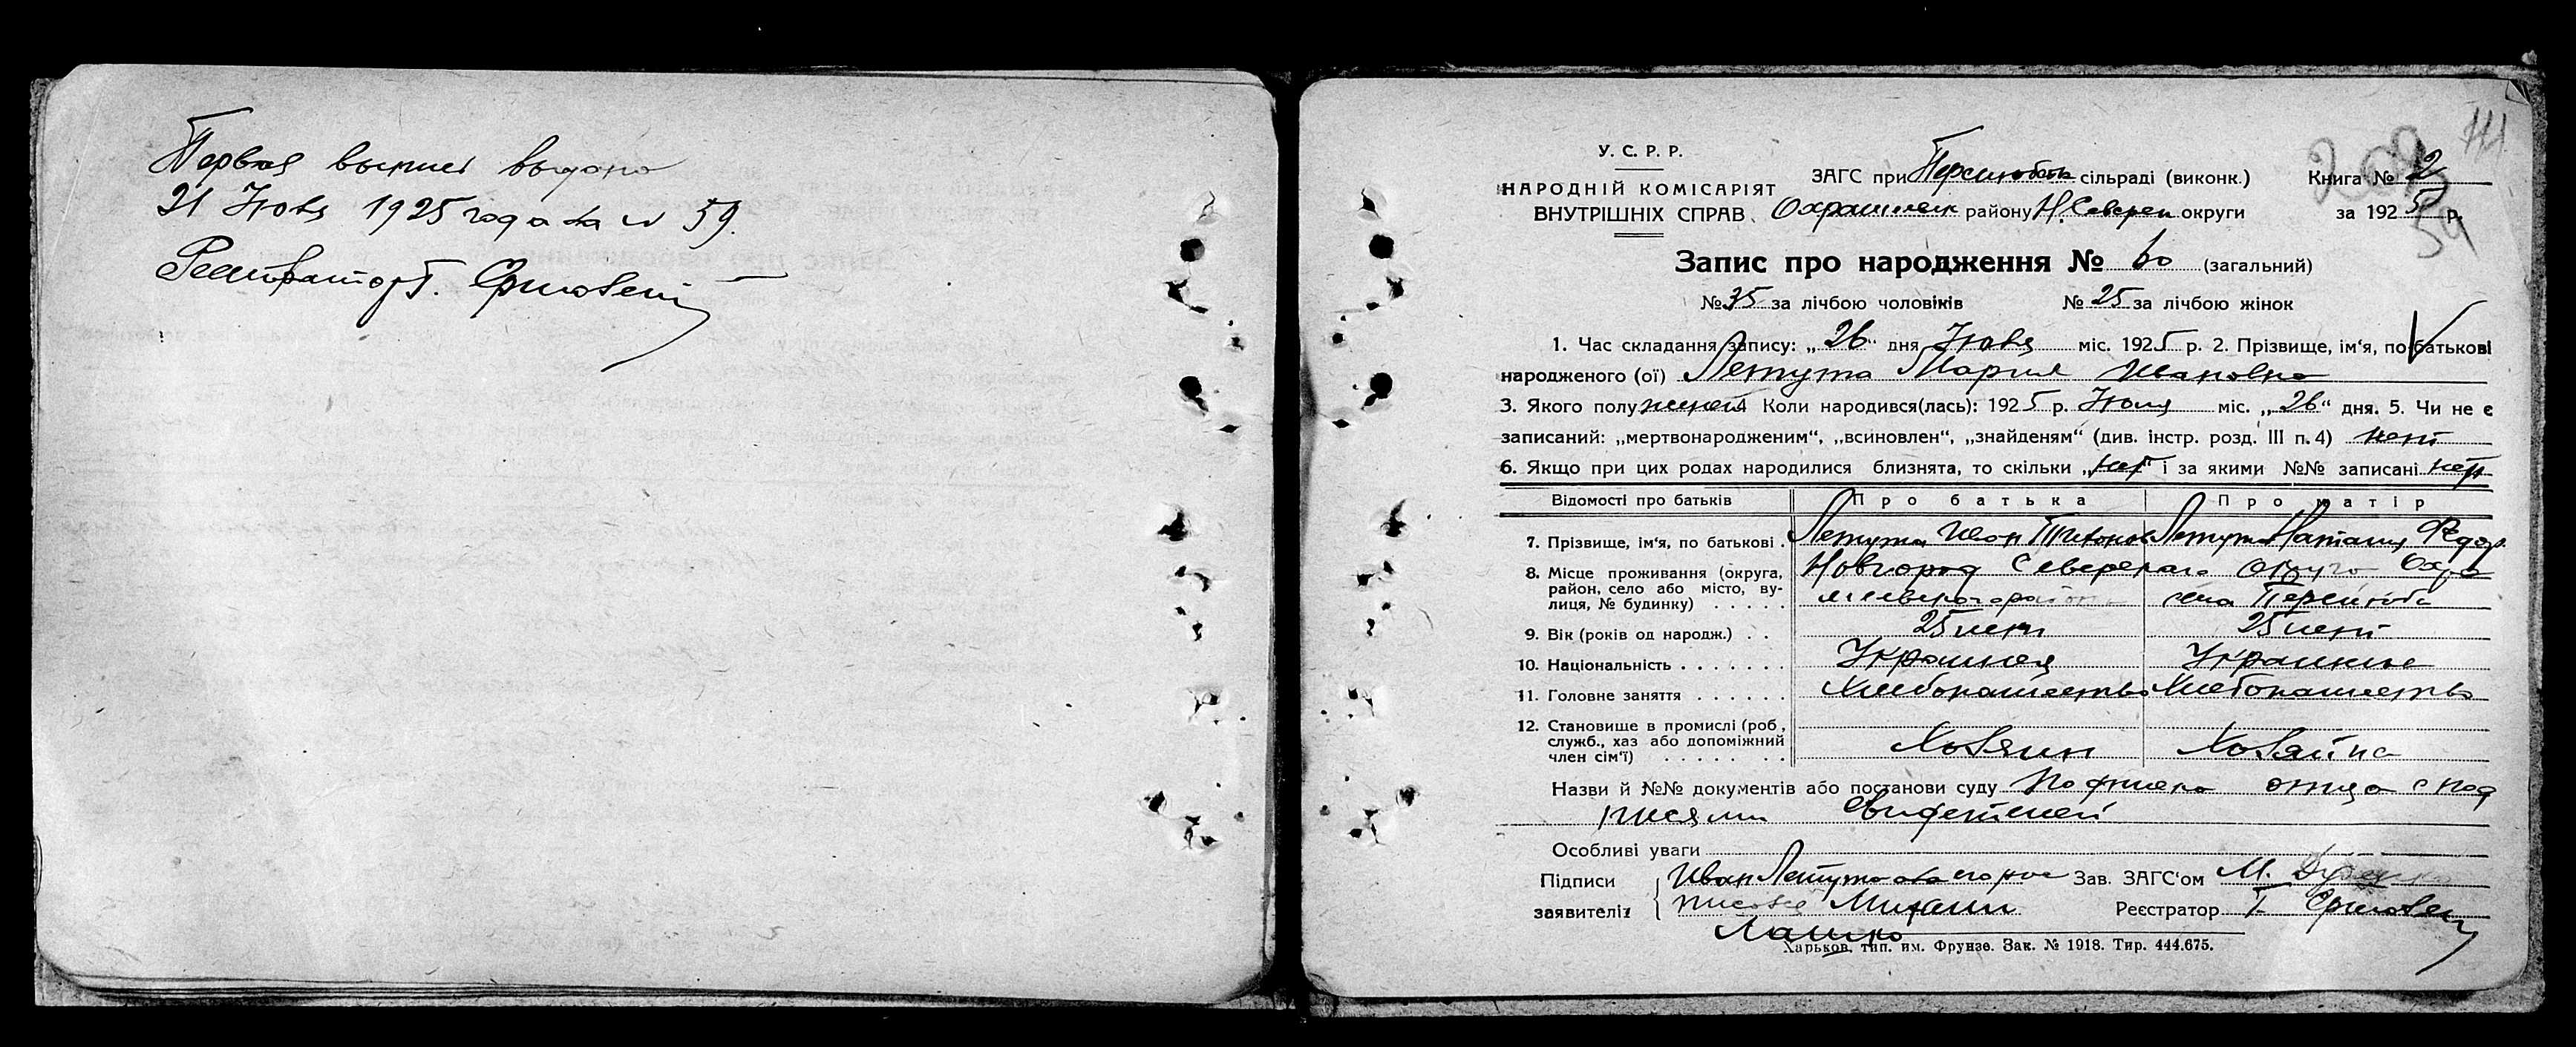 Первая выпись выдана
21 Июня 1925 года за № 59.
Регистратор Т.
У. С. Р. Р.
НАРОДНІЙ КОМІСАРІЯТ
ВНУТРІШНІХ СПРАВ.
ЗАГС при сільраді (виконк.)
району Н. Северск округи
Книга № 2
за 1925 р.
59
Запис про народження № 60 (загальний)
№ 35 за лічбою чоловіків № 25 за лічбою жінок
1. Час складання запису: „26“ дня міс. 1925 р. 2. Прізвище, ім‘я, по батькові
народженого (ої) Летута Мария Ивановна
3. Якого полу женск 4 Коли народився(лась): 1925 р. міс. „26“ дня. 5. Чи не є
записаний: „мертвонародженим“, „всиновлен“, „знайденям“ (див. інстр. розд. III п. 4) нет
6. Якщо при цих родах народилися близнята, то скільки „нет“ і за якими №№ записані нет
Відомості про батьків Про батька Про матір
7. Прізвище, ім‘я, по батькові . Летута Иван Тихонов Летута Наталия Федор.
8. Місце проживання (округа, район, село або місто, вулиця, № будинку) . . . . . Новгород Северского округа
района села
9. Вік (років од народж.) . . 25 лет 25 лет
10. Національність . . . . . . . Украинец Украинка
11. Головне заняття . . . . . . Хлебопашество Хлебопашество
12. Становище в промислі (роб., служб., хаз або допоміжний член сім‘ї) . . . . . . . Хозяин Хозяйка
Назви й №№ документів або постанови суду Подписка отца с под
писями свидетелей
Особливі уваги
Підписи Иван Летута а за его рос Зав. ЗАГС‘ом М.
заявителів Михаил Реєстратор Т.
Лашко
Харьков, тип. им. Фрунзе. Зак. № 1918. Тир. 444.675.